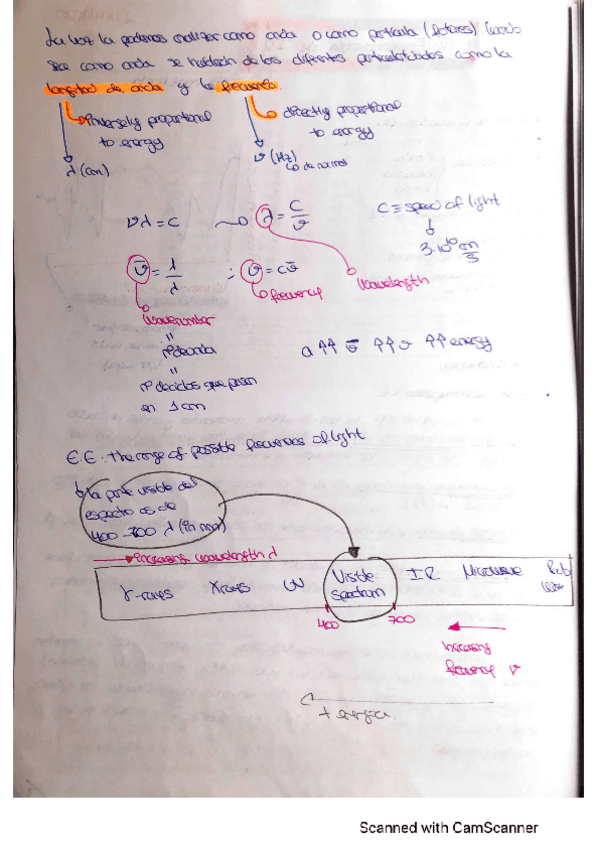 La luz la podemos analizar como onda o como partícula (fotones) cuando
sea como onda se hablará de las diferentes particularidades como la
longitud de onda y la frecuencia.
inversely proportional
to energy
directly proportional
to energy
λ (cm)
ν (Hz)
de normal
νλ = C
λ = C/ν
C = speed of light
3·10¹⁰ cm/s
ν̄ = 1/λ ; ν = cν̄
frequency
wavelength
wavenumber
=
nº de onda
=
nº de ciclos que pasan
en 1 cm
a ↑↑ ν̄ ↑↑ ν ↑↑ energy
E.E.: The range of possible frequencies of light
la parte visible del
espectro es de
400-700 λ (in nm)
increasing wavelength λ
γ-rays X rays UV Visible spectrum IR Microwave Radio
400 700
Increasing
frequency ν
+ energía
Scanned with CamScanner